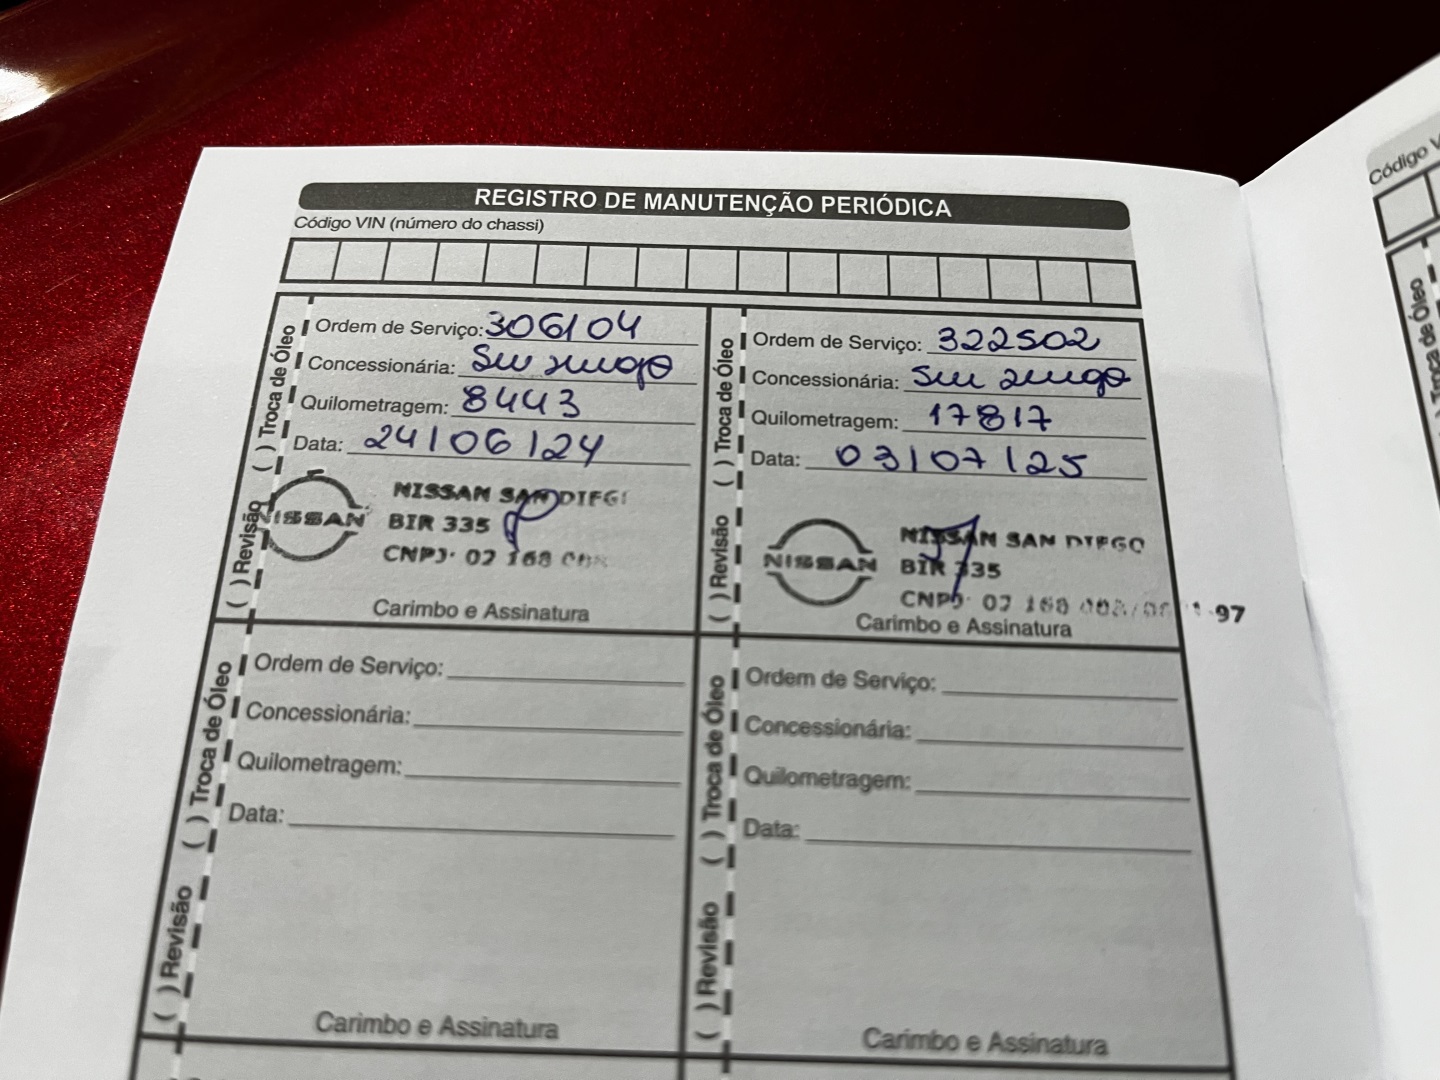 REGISTRO DE MANUTENÇÃO PERIÓDICA
Código VIN (número do chassi)
( ) Revisão ( ) Troca de Óleo
Ordem de Serviço: 306104
Concessionária:
Quilometragem: 8443
Data: 24/06/24
NISSAN
NISSAN SAN DIEG
BIR 335
CNPJ: 02 168
Carimbo e Assinatura
( ) Revisão ( ) Troca de Óleo
Ordem de Serviço: 322502
Concessionária:
Quilometragem: 17817
Data: 03/07/25
NISSAN
NISSAN SAN DIEGO
BIR 335
CNPJ: 02 168 97
Carimbo e Assinatura
( ) Revisão ( ) Troca de Óleo
Ordem de Serviço:
Concessionária:
Quilometragem:
Data:
Carimbo e Assinatura
( ) Revisão ( ) Troca de Óleo
Ordem de Serviço:
Concessionária:
Quilometragem:
Data:
Carimbo e Assinatura
Código V
Troca de Óleo